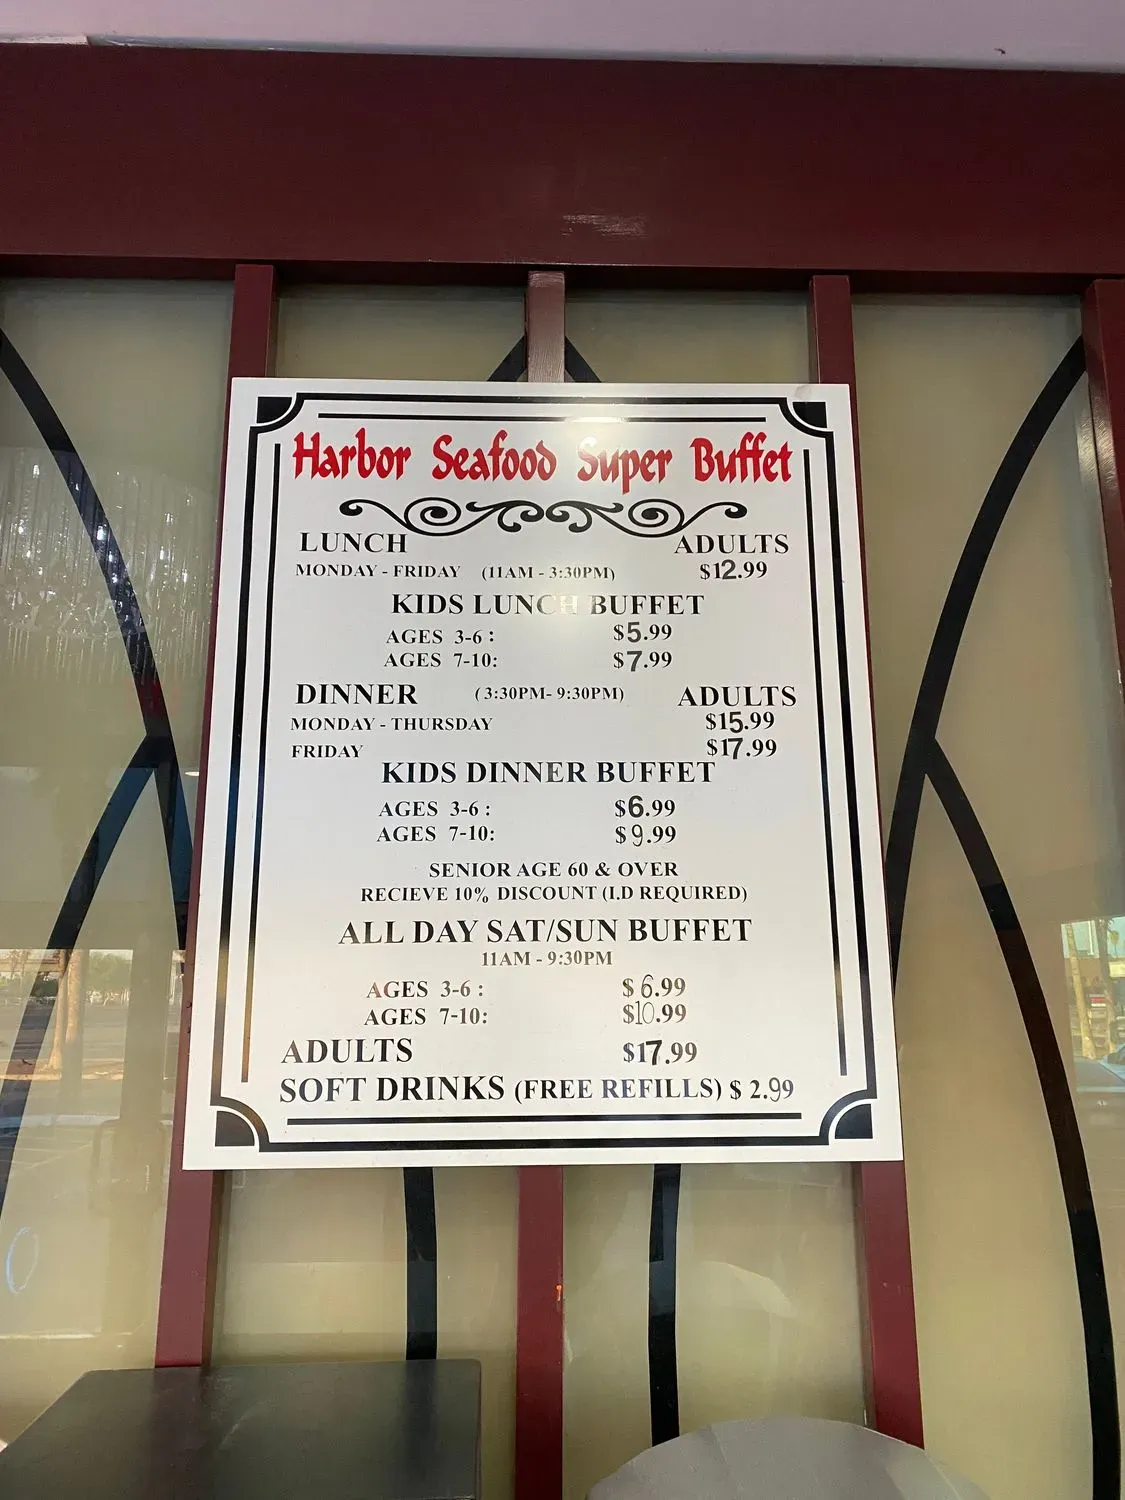 Harbor Seafood Super Buffet
LUNCH ADULTS
MONDAY - FRIDAY (11AM - 3:30PM) $12.99
KIDS LUNCH BUFFET
AGES 3-6 : $5.99
AGES 7-10: $7.99
DINNER (3:30PM- 9:30PM) ADULTS
MONDAY - THURSDAY $15.99
FRIDAY $17.99
KIDS DINNER BUFFET
AGES 3-6 : $6.99
AGES 7-10: $9.99
SENIOR AGE 60 & OVER
RECIEVE 10% DISCOUNT (I.D REQUIRED)
ALL DAY SAT/SUN BUFFET
11AM - 9:30PM
AGES 3-6 : $6.99
AGES 7-10: $10.99
ADULTS $17.99
SOFT DRINKS (FREE REFILLS) $ 2.99